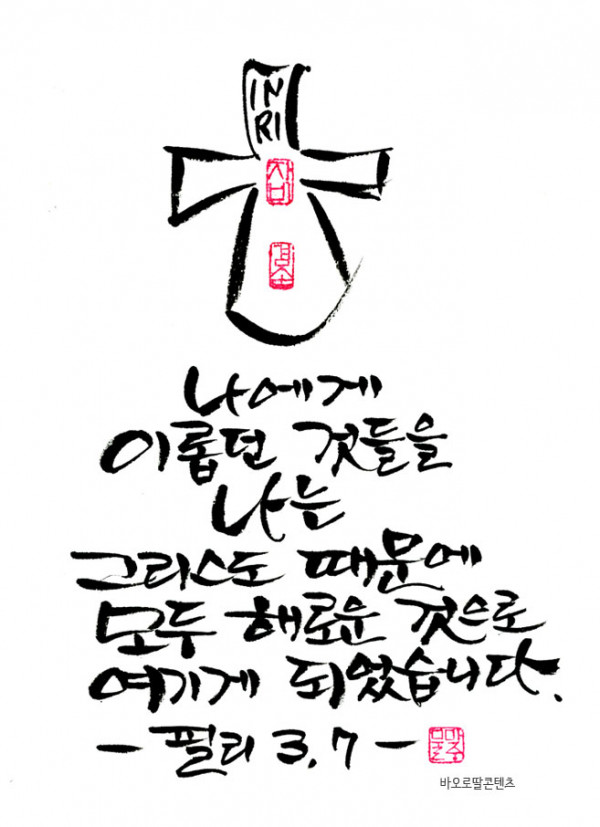 IN
RI
나에게
이롭던 것들을
나는
그리스도 때문에
모두 해로운 것으로
여기게 되었습니다.
- 필리 3,7 -
바오로딸콘텐츠